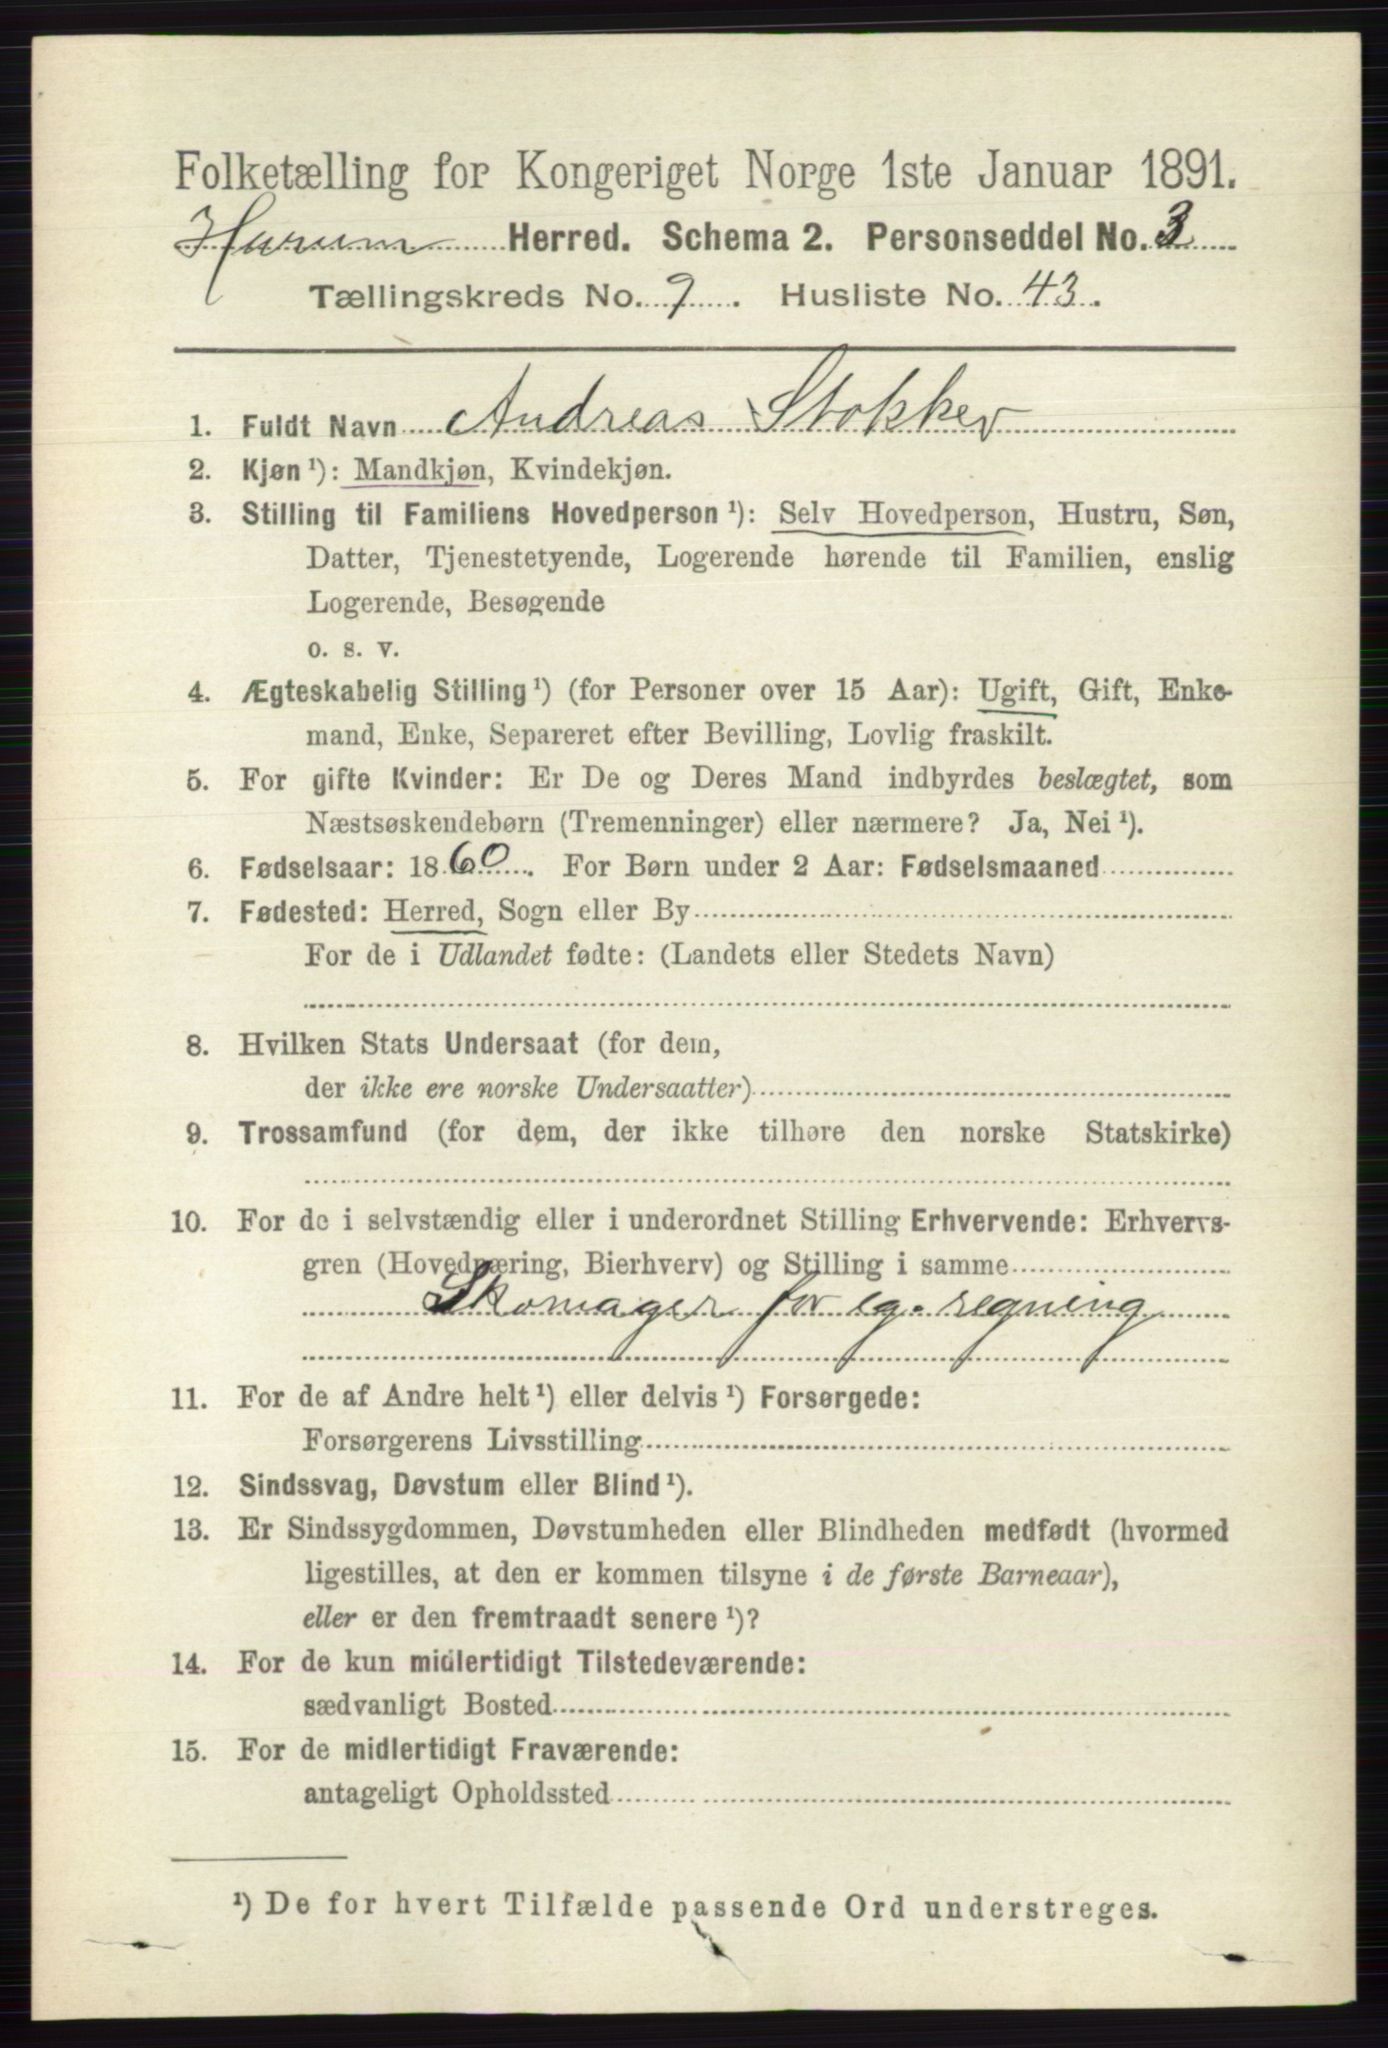 Folketælling for Kongeriget Norge 1ste Januar 1891.
Hurum Herred. Schema 2. Personseddel No. 3
Tællingskreds No. 9. Husliste No. 43.
1. Fuldt Navn Andreas Stokker
2. Kjøn¹): Mandkjøn, Kvindekjøn.
3. Stilling til Familiens Hovedperson¹): Selv Hovedperson, Hustru, Søn,
Datter, Tjenestetyende, Logerende hørende til Familien, enslig
Logerende, Besøgende
o. s. v.
4. Ægteskabelig Stilling¹) (for Personer over 15 Aar): Ugift, Gift, Enke-
mand, Enke, Separeret efter Bevilling, Lovlig fraskilt.
5. For gifte Kvinder: Er De og Deres Mand indbyrdes beslægtet, som
Næstsøskendebørn (Tremenninger) eller nærmere? Ja, Nei¹).
6. Fødselsaar: 1860. For Børn under 2 Aar: Fødselsmaaned
7. Fødested: Herred, Sogn eller By
For de i Udlandet fødte: (Landets eller Stedets Navn)
8. Hvilken Stats Undersaat (for dem,
der ikke ere norske Undersaatter)
9. Trossamfund (for dem, der ikke tilhøre den norske Statskirke)
10. For de i selvstændig eller i underordnet Stilling Erhvervende: Erhvervs-
gren (Hovednæring, Bierhverv) og Stilling i samme
Skomager for eg. regning
11. For de af Andre helt¹) eller delvis¹) Forsørgede:
Forsørgerens Livsstilling
12. Sindssvag, Døvstum eller Blind¹).
13. Er Sindssygdommen, Døvstumheden eller Blindheden medfødt (hvormed
ligestilles, at den er kommen tilsyne i de første Barneaar),
eller er den fremtraadt senere¹)?
14. For de kun midlertidigt Tilstedeværende:
sædvanligt Bosted
15. For de midlertidigt Fraværende:
antageligt Opholdssted
¹) De for hvert Tilfælde passende Ord understreges.